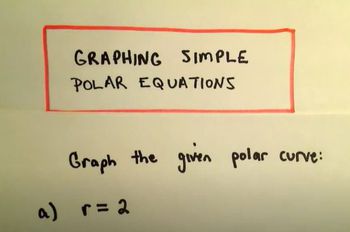 GRAPHING SIMPLE
POLAR EQUATIONS
Graph the given polar curve:
a) r = 2